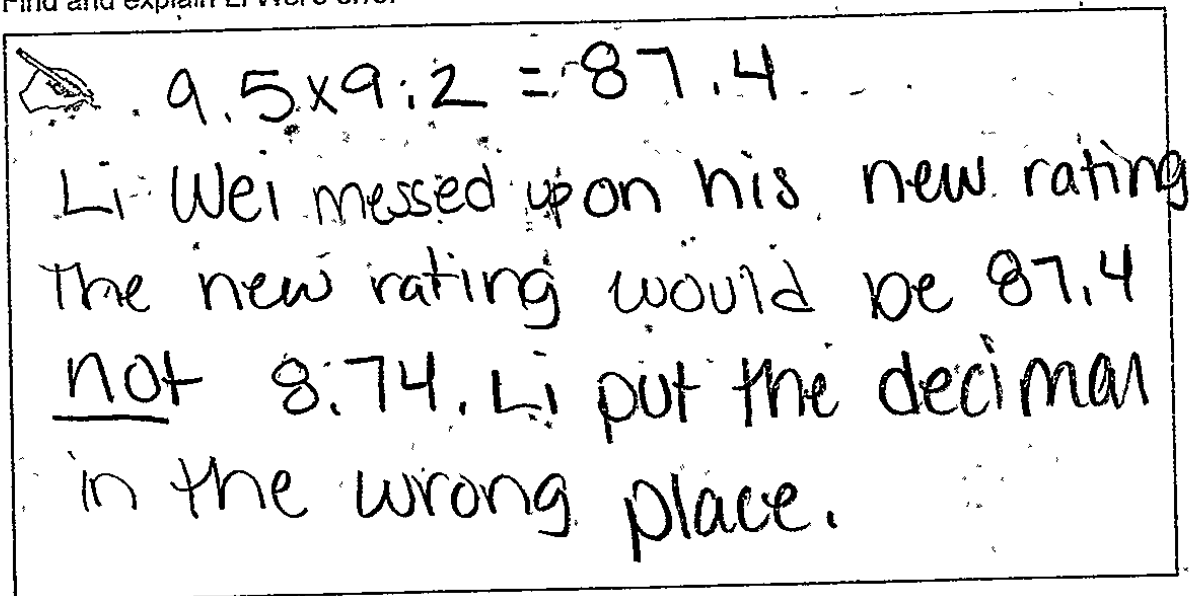 Find and explain Li Wei's error
9.5x9.2 = 87.4
Li Wei messed up on his new rating
The new rating would be 87.4
not 8.74. Li put the decimal
in the wrong place.